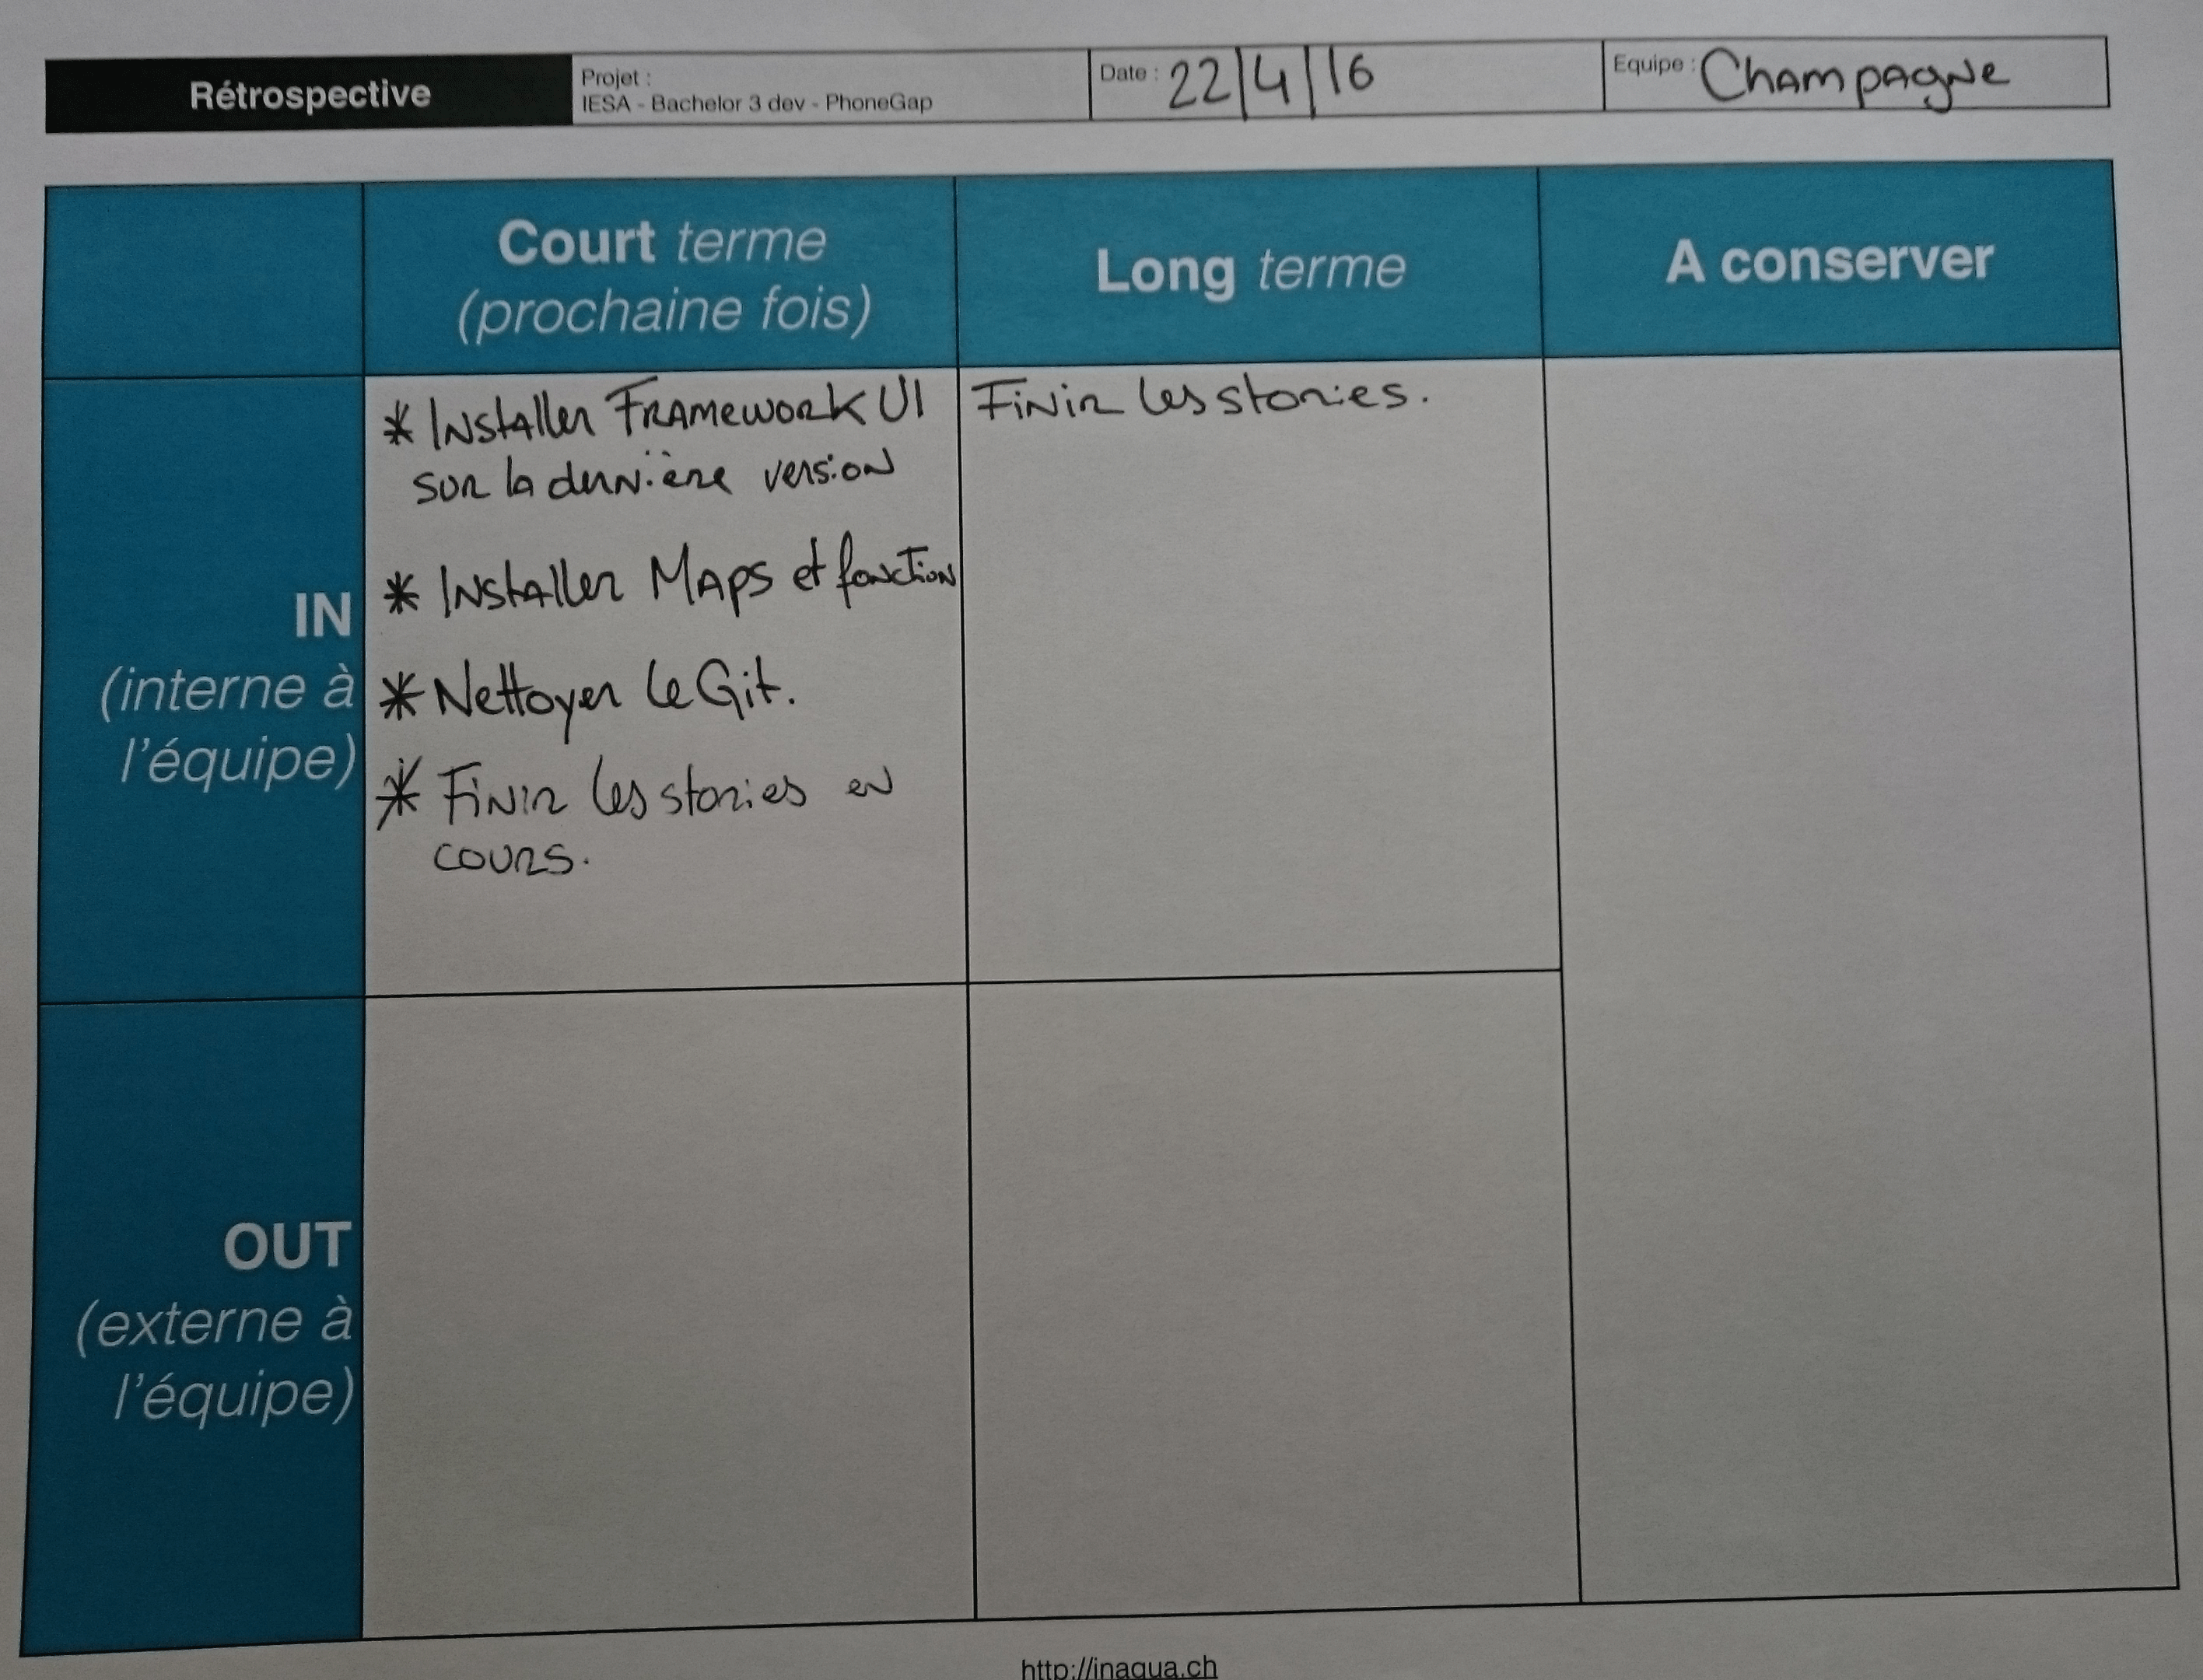 Rétrospective
Projet :
IESA - Bachelor 3 dev - PhoneGap
Date : 22/4/16
Equipe : Champagne
Court terme
(prochaine fois)
Long terme
A conserver
IN
(interne à
l'équipe)
* Installer Framework UI
sur la dernière version
* Installer Maps et fonction
* Nettoyer le Git.
* Finir les stories en
cours.
Finir les stories.
OUT
(externe à
l'équipe)
http://inaqua.ch